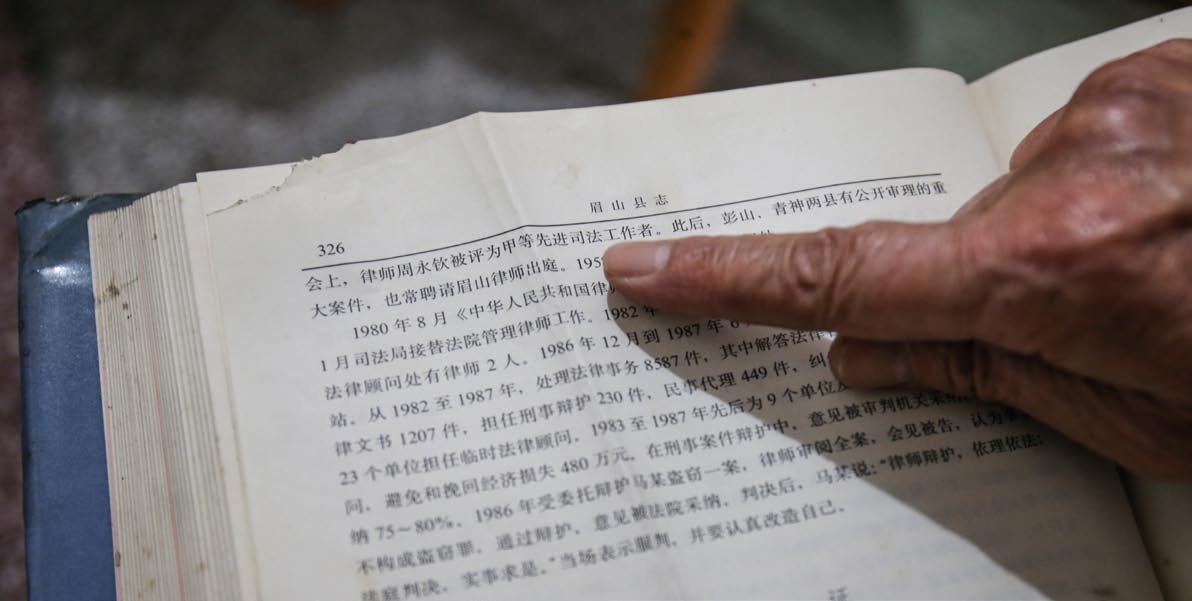 眉山县志
326
会上，律师周永钦被评为甲等先进司法工作者。此后，彭山、青神两县有公开审理的重
大案件，也常聘请眉山律师出庭。195
1980年8月《中华人民共和国律
1月司法局接替法院管理律师工作。1982年
法律顾问处有律师2人。1986年12月到1987年6
站。从1982至1987年，处理法律事务8587件，其中解答法律
律文书1207件，担任刑事辩护230件，民事代理449件，纠
23个单位担任临时法律顾问。1983至1987年先后为9个单位
问，避免和挽回经济损失480万元。在刑事案件辩护中，意见被审判机关采纳
纳75～80%。1986年受委托辩护马某盗窃一案，律师审阅全案，会见被告，认为
不构成盗窃罪。通过辩护，意见被法院采纳。判决后，马某说：“律师辩护，依理依法；
法庭判决，实事求是。”当场表示服判，并要认真改造自己。
证